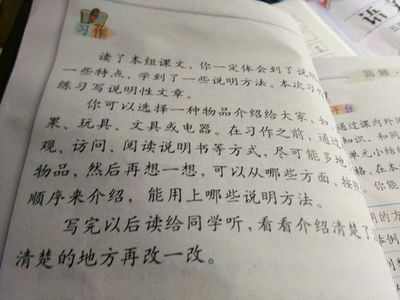 习作
读了本组课文，你一定体会到了说明
一些特点，学到了一些说明方法。本次习作
练习写说明性文章。
你可以选择一种物品介绍给大家，如
果、玩具、文具或电器。在习作之前，通过
观、访问、阅读说明书等方式，尽可能多地
物品，然后再想一想，可以从哪些方面，按照
顺序来介绍，能用上哪些说明方法。
写完以后读给同学听，看看介绍清楚了
清楚的地方再改一改。
语
回顾
平台
通过课内外阅
知识，和同
单元小结
格。在本